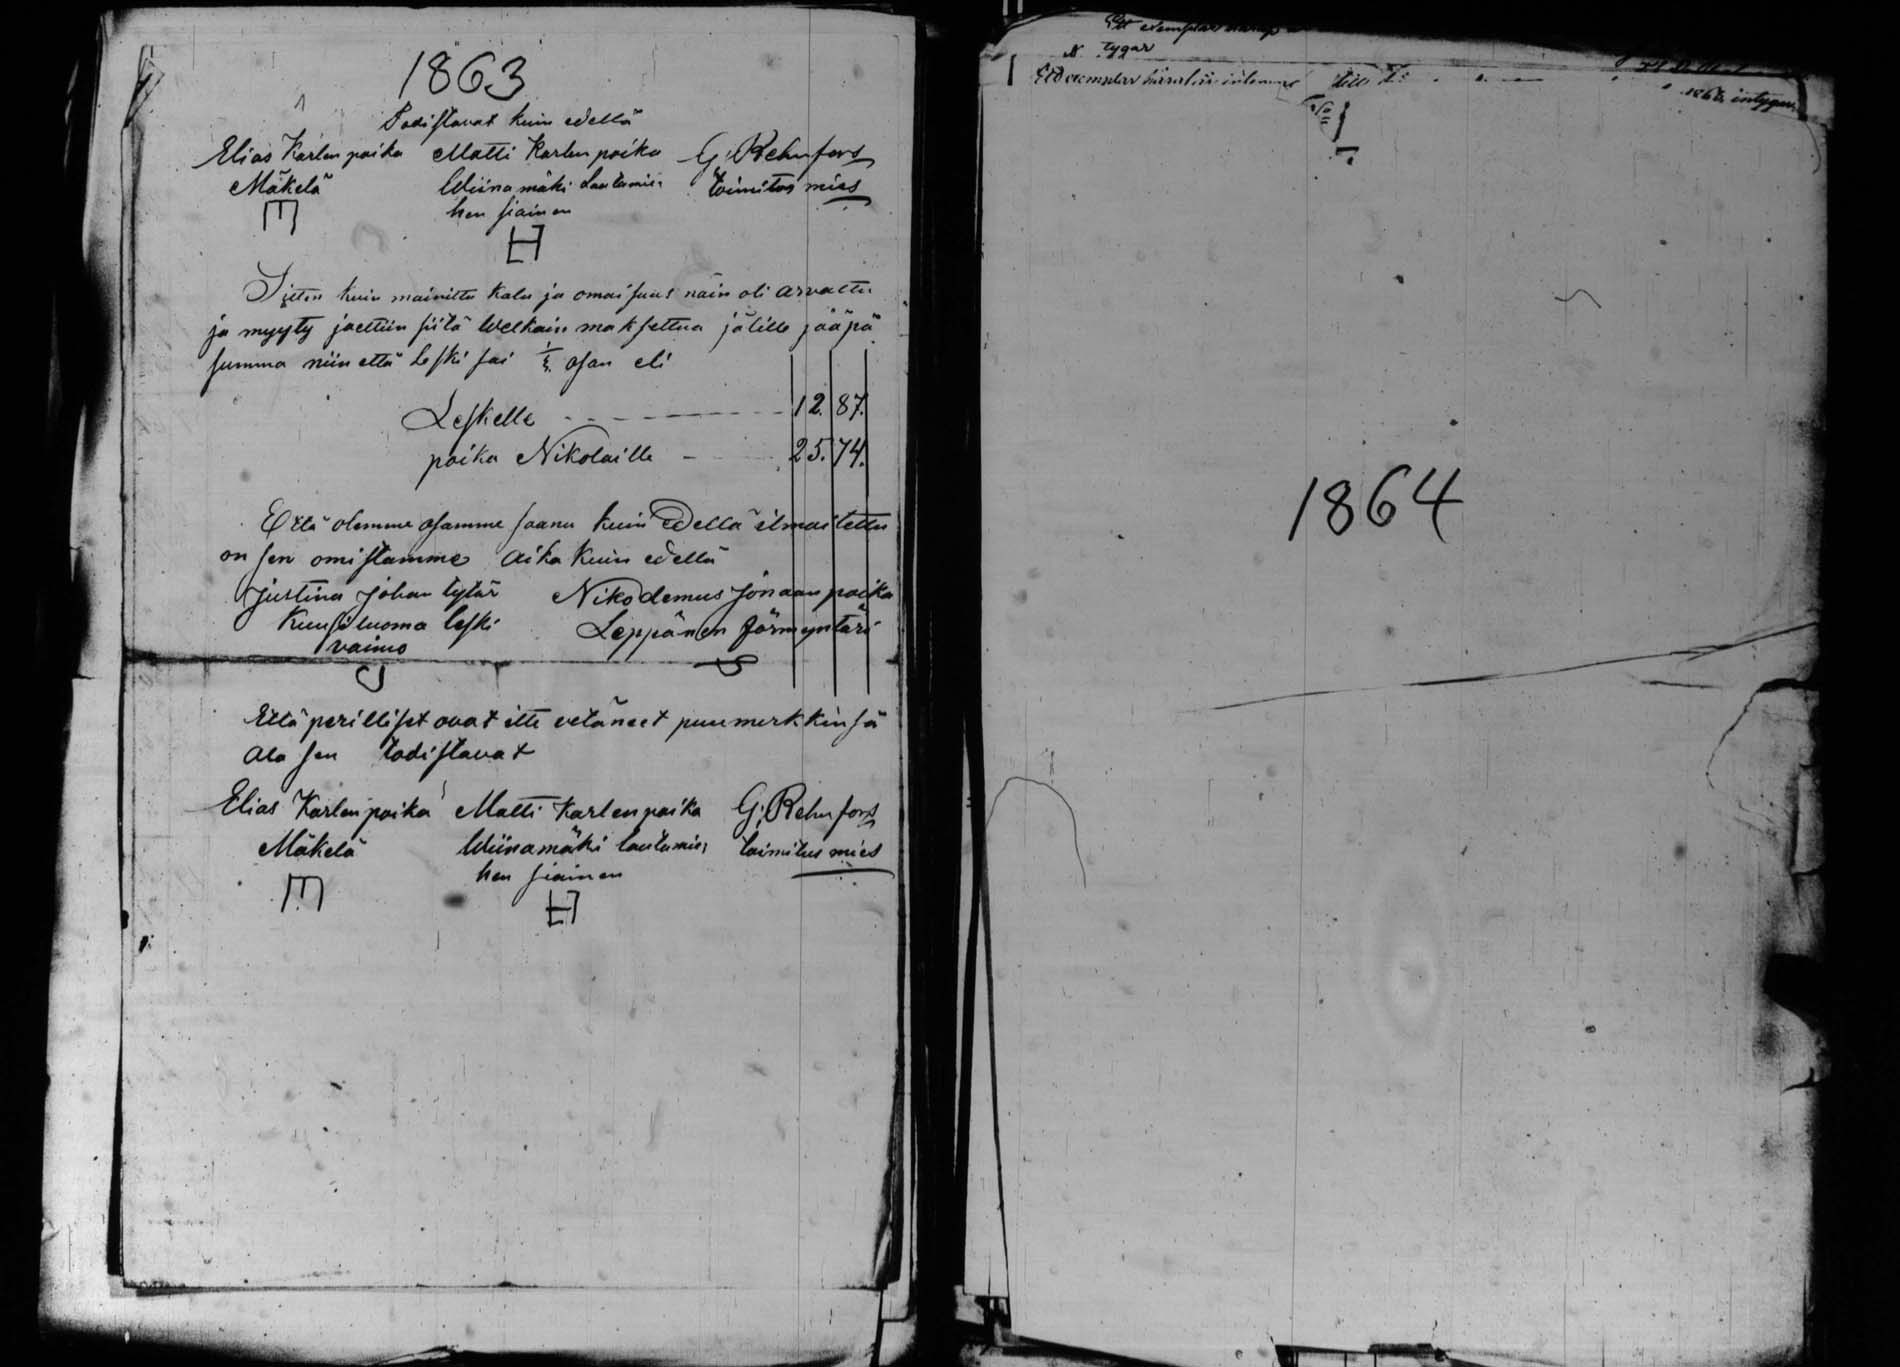 1863
Todistavat kuin edellä
Elias Karlen poika Matti Karlen poika G: Rehnfors
Mäkelä Wiinamäki Lautamie: toimitus mies
hen siainen
Sitten kuin mainittu kalu ja omaisuus näin oli arvattu
ja myyty jaettiin siitä Welkain maksettua jälille jääpä
summa niin että leski sai 1/3 osan eli
Leskelle 12. 87.
poika Nikolaille 25. 74.
Että olemme osamme saanu kuin edellä ilmoitettu
on sen omistamme aika kuin edellä
Justina Johan tytär Nikodemus Jonaan poika
Kuusiluoma leski Leppänen förmyntäri
vaimo
Että perilliset ovat itte vetäneet puumerkkinsä
ala sen todistavat
Elias Karlen poika Matti Karlen poika G: Rehnfors
Mäkelä Wiinamäki lautamie: toimitus mies
hen siainen
Ett exemplar
tygar
exemplar till
1863 intygar
1864